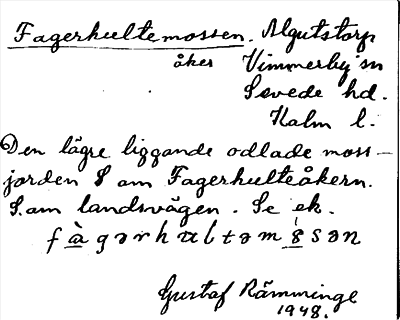 Fagerhultemossen. Algutstorp
åker Vimmerby sn
Sevede hd.
Kalm l.
Den lägre liggande odlade moss-
jorden S om Fagerhulteåkern.
S.om landsvägen. Se ek.
fàgərhɯltəmo̊sən
Gustaf Rämminge
1948.